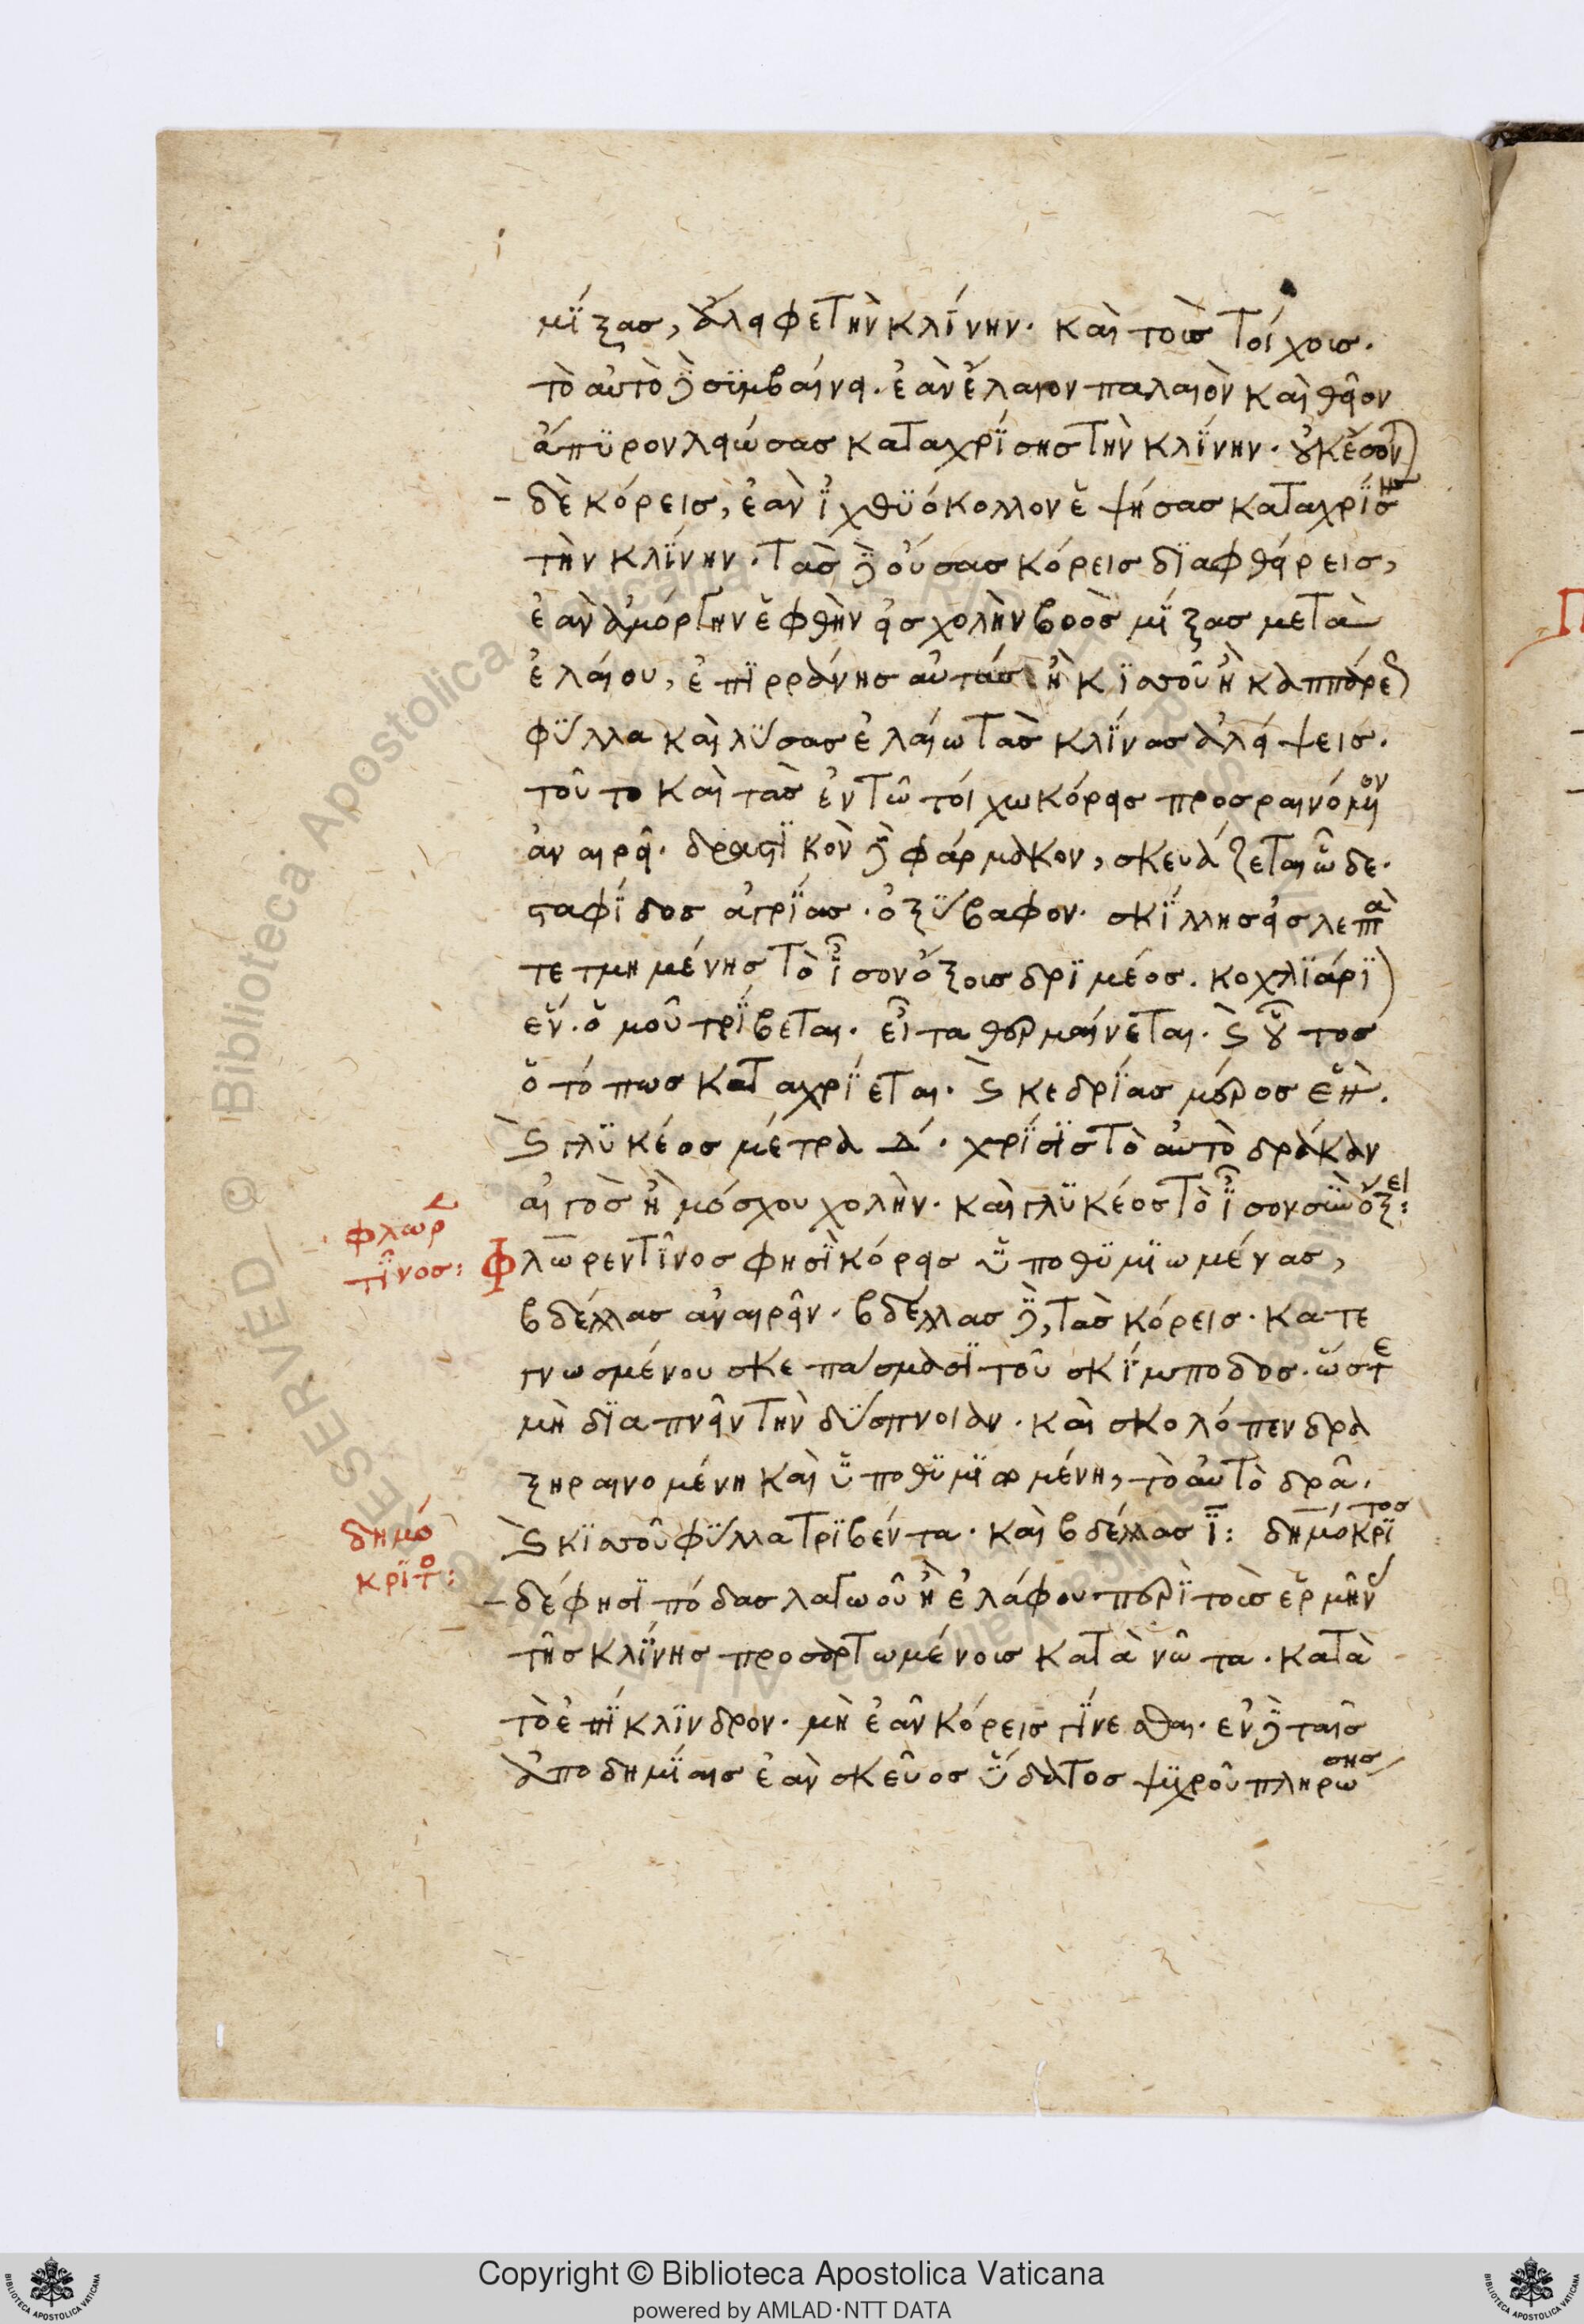 μΐξας, ἄλειφε τὴν κλΐνην. καὶ τοὺς τοίχους.
τὸ αὐτὸ δὲ συμβαίνει. ἐὰν ἔλαιον παλαιὸν καὶ θεῖον
ἄπϋρον λειώσας καταχρΐσης τὴν κλΐνην. οὐκ ἔσοντ)
– δὲ κόρεις, ἐὰν ἰχθϋόκολλον ἑψήσας καταχρΐσης
τὴν κλΐνην. τὰς δὲ οὔσας κόρεις διαφθείρεις,
ἐὰν ἀμόργην ἑφθὴν εἰς χολὴν βοὸς μΐξας μετὰ
ἐλαίου, ἐπϊρράνης αὐτάς ἢ κϊσσοῦ ἢ καππάρε)
φΰλλα καὶ λΰσας ἐλαίω τὰς κλΐνας ἀλείψεις.
τοῦτο καὶ τὰς ἐν τῶ τοίχω κόρεις προσραινόμον
ἀναιρεῖ. δραστϊκὸν δὲ φάρμακον, σκευάζεται ὧδε.
σταφΐδος ἀγρΐας. ὀξΰβαφον. σκΐλλης εἰς λεπτὰ
τετμημένης τὸ ἶσον ὄξους δρϊμέος. κοχλϊάρϊ)
ἕν. ὁμοῦ τρΐβεται. εἶτα θερμαίνεται. καὶ οὗτος
ὁ τόπως καταχρΐεται. καὶ κεδρΐας μέρος ἓν.
καὶ γλϋκέος μέτρα Δ΄. χρΐσϊς τὸ αὐτὸ δρᾶ κἀν
αἰγὸς ἢ μόσχου χολὴν. καὶ γλϋκέος τὸ ἶσον σὺν ὄξει:
φλωρ
τῖνος: Φλωρεντῖνος φησὶ κόρεις ὑποθϋμϊωμένας,
βδέλλας ἀναιρεῖν. βδέλλας δὲ, τὰς κόρεις. κατε
γνωσμένου σκεπάσμασϊ τοῦ σκΐμποδος. ὥστε
μὴ διαπνεῖν τὴν δΰσπνοιαν. καὶ σκολόπενδρα
ξηραινομένη καὶ ὑποθϋμϊωμένη, τὸ αὐτὸ δρᾶ.
καὶ κϊσσοῦ φΰλλα τρϊβέντα. καὶ βδέλλας ϊ: δημόκρϊτος
δημό
κρϊτο:
– δέ φησϊ πόδας λαγωοῦ ἢ ἐλάφου περὶ τοὺς ἑρμῖν
τῆς κλΐνης προσαρτωμένους κατὰ νῶτα. κατὰ
τὸ ἐπΐκλϊνδρον. μὴ ἐᾶν κόρεις γΐνεσθαι. ἐν δὲ ταῖς
ἀποδημΐαις ἐὰν σκεῦος ὕδατος ψϋχροῦ πληρώσης